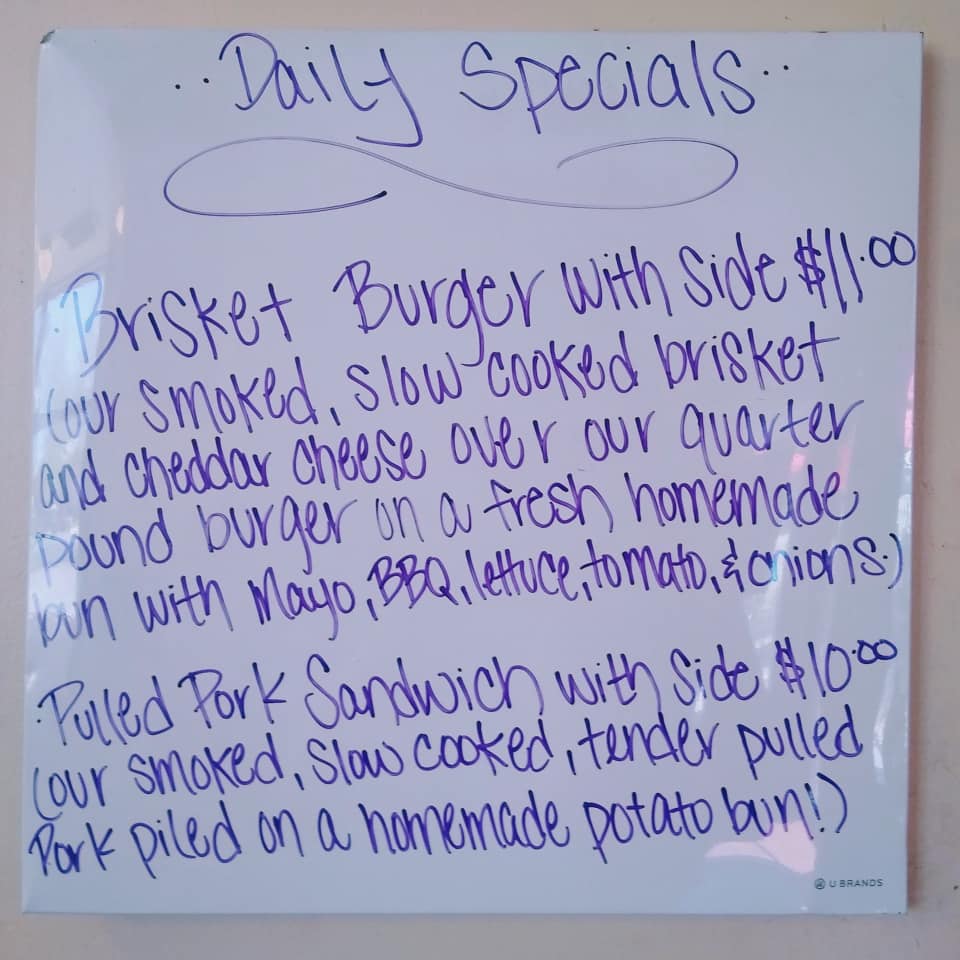 Daily Specials
Brisket Burger with Side $11.00
(our smoked, slow cooked brisket
and cheddar cheese over our quarter
pound burger on a fresh homemade
bun with Mayo, BBQ, lettuce, tomato, & onions.)
Pulled Pork Sandwich with Side $10.00
(our smoked, slow cooked, tender pulled
Pork piled on a homemade potato bun!)
U BRANDS